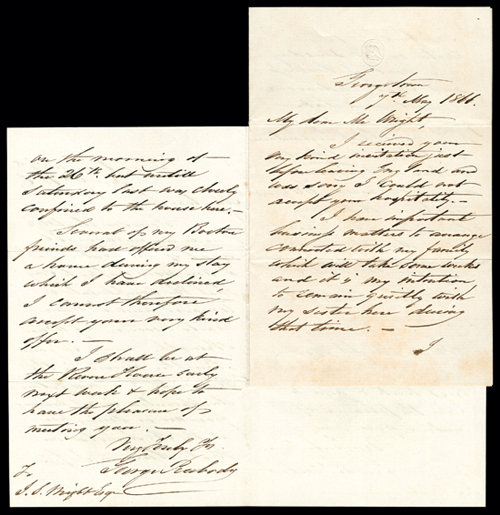 Georgetown
7th May 1866.
My dear Mr Wright,
I received your
very kind invitation just
before leaving England and
was sorry I could not
accept your hospitality. —
I have important
business matters to arrange
connected with my family
which will take some weeks
and it is my intention
to remain quietly with
my Sister here during
that time. —
I
on the morning of
the 26th but untill
Saturday last was closely
confined to the house here. —
Several of my Boston
friends had offered me
a home during my stay
which I have declined
I cannot therefore
accept your very kind
offer. —
I shall be at
the Revere House early
next week & hope to
have the pleasure of
meeting you. —
Very Truly Yrs
George Peabody
To
J. S. Wright Esq